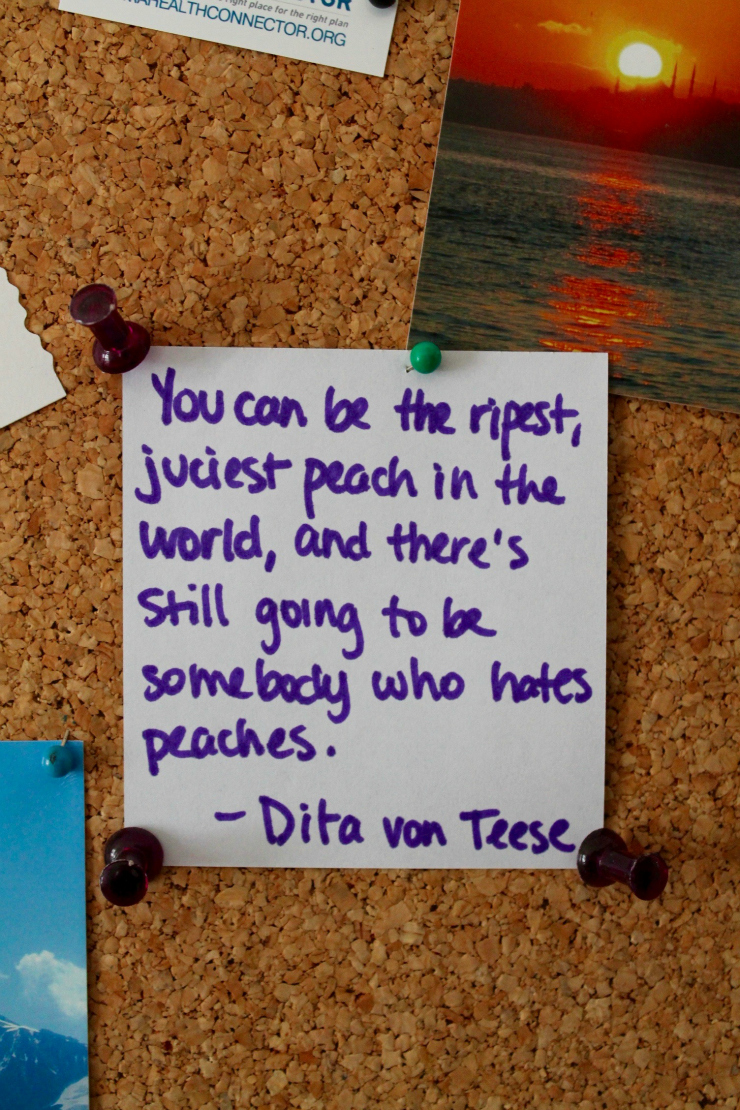 right place for the right plan
AHEALTHCONNECTOR.ORG
You can be the ripest,
juciest peach in the
world, and there's
still going to be
somebody who hates
peaches.
- Dita von Teese